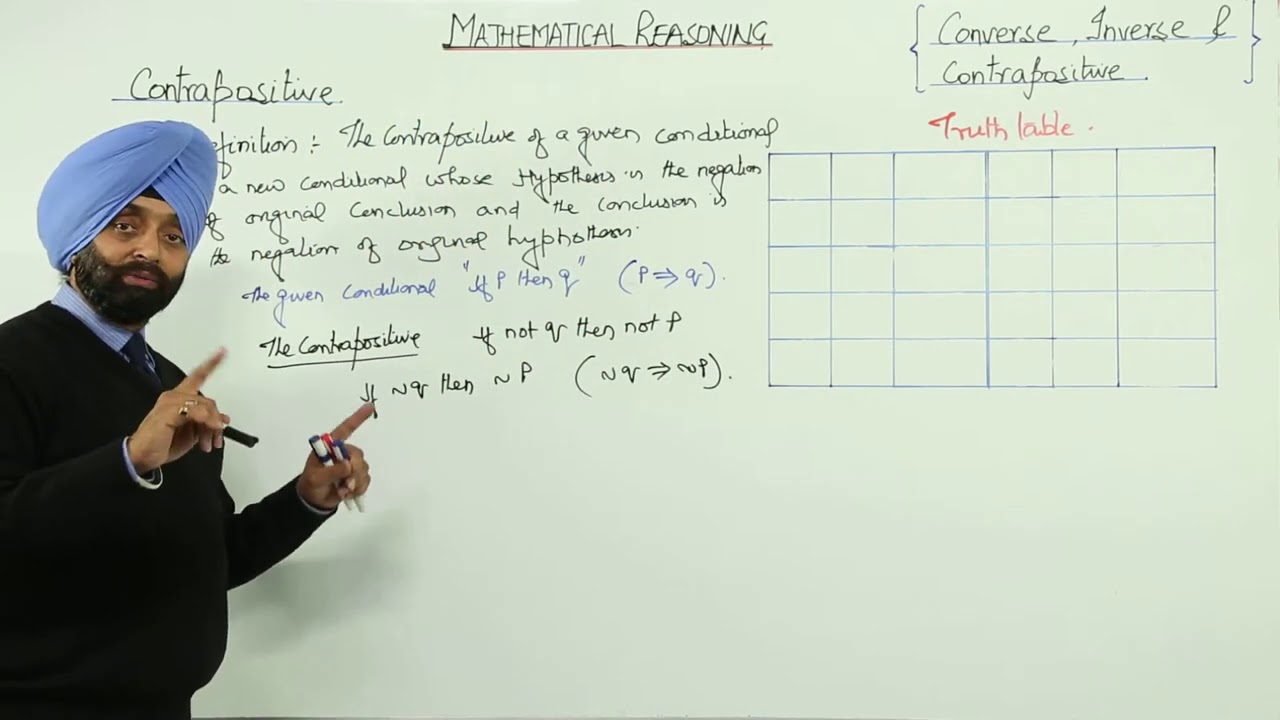 MATHEMATICAL REASONING
{ Converse, Inverse &
Contrapositive. }
Contrapositive
efinition :- The Contrapositive of a given conditional
a new conditional whose Hypothesis is the negation
of original Conclusion and the conclusion is
the negation of original hyphothesis.
The given Conditional "If P then q" (P ⇒ q).
The Contrapositive If not q then not P
If ~q then ~P (~q ⇒ ~P).
Truth Table.